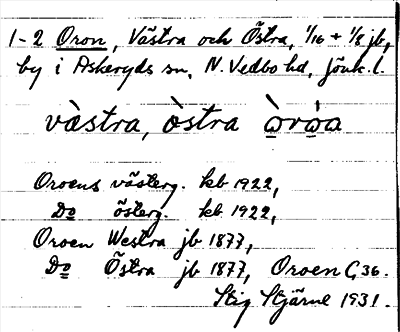 1-2 Oron, Västra och Östra, 1/16 + 1/8 jb,
by i Askeryds sn, N. Vedbo hd, Jönk. l.
västra, östra
Oroens västerg. kb 1922,
Do österg. kb 1922,
Oroen Westra jb 1877,
Do Östra jb 1877, Oroen G 36.
Stig Stjärne 1931.